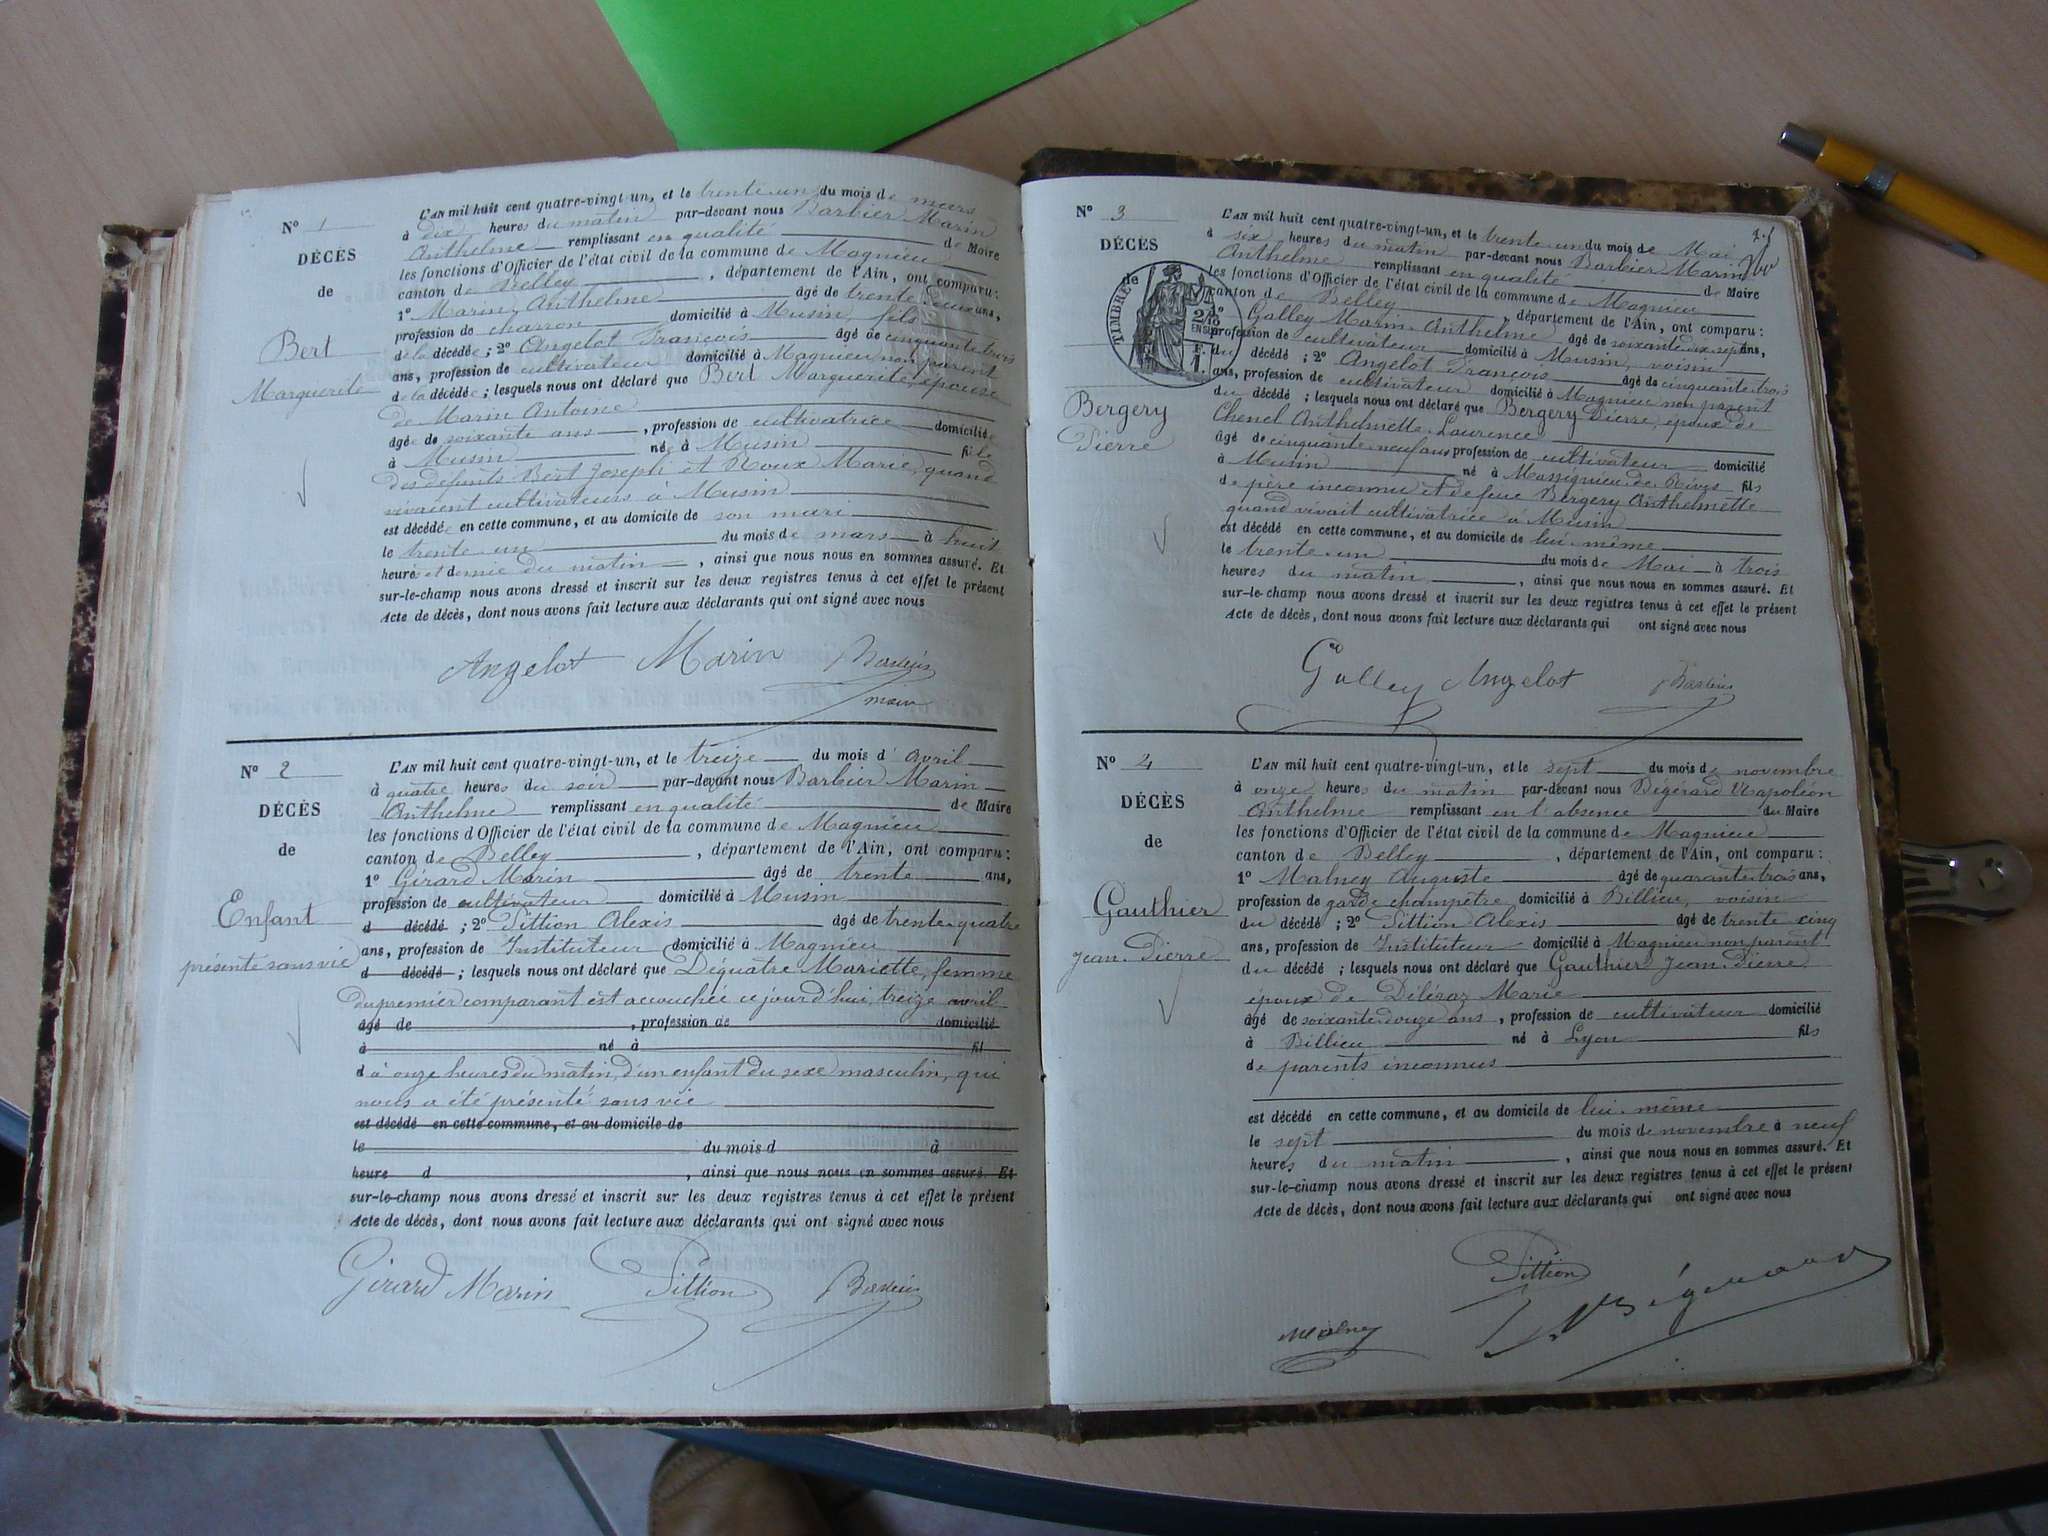 N° 1
DÉCÈS
de
Bert
Marguerite
L'AN mil huit cent quatre-vingt-un, et le trente-un du mois de mars
à dix heures du matin par-devant nous Barbier Marin
Anthelme remplissant en qualité de Maire
les fonctions d'Officier de l'état civil de la commune de Magnieu
canton de Belley, département de l'Ain, ont comparu:
1° Marin Anthelme âgé de trente ans,
profession de charron domicilié à Musin, fils
de la décédée; 2° Angelot François âgé de cinquante-trois
ans, profession de cultivateur domicilié à Magnieu non parent
de la décédée; lesquels nous ont déclaré que Bert Marguerite, épouse
de Marin Antoine
âgée de soixante ans, profession de cultivatrice domiciliée
à Musin née à Musin fille
des défunts Bert Joseph et Roux Marie, quand
vivaient cultivateurs à Musin
est décédée en cette commune, et au domicile de son mari
le trente-un du mois de mars à huit
heures et demie du matin, ainsi que nous nous en sommes assuré. Et
sur-le-champ nous avons dressé et inscrit sur les deux registres tenus à cet effet le présent
Acte de décès, dont nous avons fait lecture aux déclarants qui ont signé avec nous
Angelot Marin Barbier
maire
N° 2
DÉCÈS
de
Enfant
présenté sans vie
L'AN mil huit cent quatre-vingt-un, et le treize du mois d'avril
à quatre heures du soir par-devant nous Barbier Marin
Anthelme remplissant en qualité de Maire
les fonctions d'Officier de l'état civil de la commune de Magnieu
canton de Belley, département de l'Ain, ont comparu:
1° Girard Marin âgé de trente ans,
profession de cultivateur domicilié à Musin
d décédé; 2° Sittion Alexis âgé de trente-quatre
ans, profession de Instituteur domicilié à Magnieu
d décédé; lesquels nous ont déclaré que Déquatre Mariette, femme
du premier comparant est accouchée cejourd'hui, treize avril
âgé de, profession de domicilié
à né à fil
d à onze heures du matin, d'un enfant du sexe masculin, qui
nous a été présenté sans vie
est décédé en cette commune, et au domicile de
le du mois d à
heure d, ainsi que nous nous en sommes assuré. Et
sur-le-champ nous avons dressé et inscrit sur les deux registres tenus à cet effet le présent
Acte de décès, dont nous avons fait lecture aux déclarants qui ont signé avec nous
Girard Marin Sittion Barbier
N° 3
DÉCÈS
de
TIMBRE
2/10
EN SUS
F.
1.
Bergery
Pierre
L'AN mil huit cent quatre-vingt-un, et le trente-un du mois de Mai
à six heures du matin par-devant nous Barbier Marin
Anthelme remplissant en qualité de Maire
les fonctions d'Officier de l'état civil de la commune de Magnieu
canton de Belley, département de l'Ain, ont comparu:
1° Galley Marin Anthelme âgé de soixante-dix-sept ans,
profession de cultivateur domicilié à Musin, voisin
du décédé; 2° Angelot François âgé de cinquante-trois
ans, profession de cultivateur domicilié à Magnieu non parent
du décédé; lesquels nous ont déclaré que Bergery Pierre, époux de
Chenel Anthelmette Laurence
âgé de cinquante-neuf ans profession de cultivateur domicilié
à Musin né à Massignieu de Rives fils
de père inconnu et de feue Bergery Anthelmette
quand vivait cultivatrice à Musin
est décédé en cette commune, et au domicile de lui-même
le trente-un du mois de Mai à trois
heures du matin, ainsi que nous nous en sommes assuré. Et
sur-le-champ nous avons dressé et inscrit sur les deux registres tenus à cet effet le présent
Acte de décès, dont nous avons fait lecture aux déclarants qui ont signé avec nous
Galley Angelot Barbier
N° 4
DÉCÈS
de
Gauthier
Jean-Pierre
L'AN mil huit cent quatre-vingt-un, et le sept du mois de novembre
à onze heures du matin par-devant nous Bégérard Napoléon
Anthelme remplissant en l'absence du Maire
les fonctions d'Officier de l'état civil de la commune de Magnieu
canton de Belley, département de l'Ain, ont comparu:
1° Malney Auguste âgé de quarante-trois ans,
profession de garde champêtre domicilié à Billieu, voisin
du décédé; 2° Sittion Alexis âgé de trente cinq
ans, profession de Instituteur domicilié à Magnieu non parent
du décédé; lesquels nous ont déclaré que Gauthier Jean-Pierre
époux de Déléraz Marie
âgé de soixante-douze ans, profession de cultivateur domicilié
à Billieu né à Lyon fils
de parents inconnus
est décédé en cette commune, et au domicile de lui-même
le sept du mois de novembre à neuf
heures du matin, ainsi que nous nous en sommes assuré. Et
sur-le-champ nous avons dressé et inscrit sur les deux registres tenus à cet effet le présent
Acte de décès, dont nous avons fait lecture aux déclarants qui ont signé avec nous
Sittion
Malney Bégérard